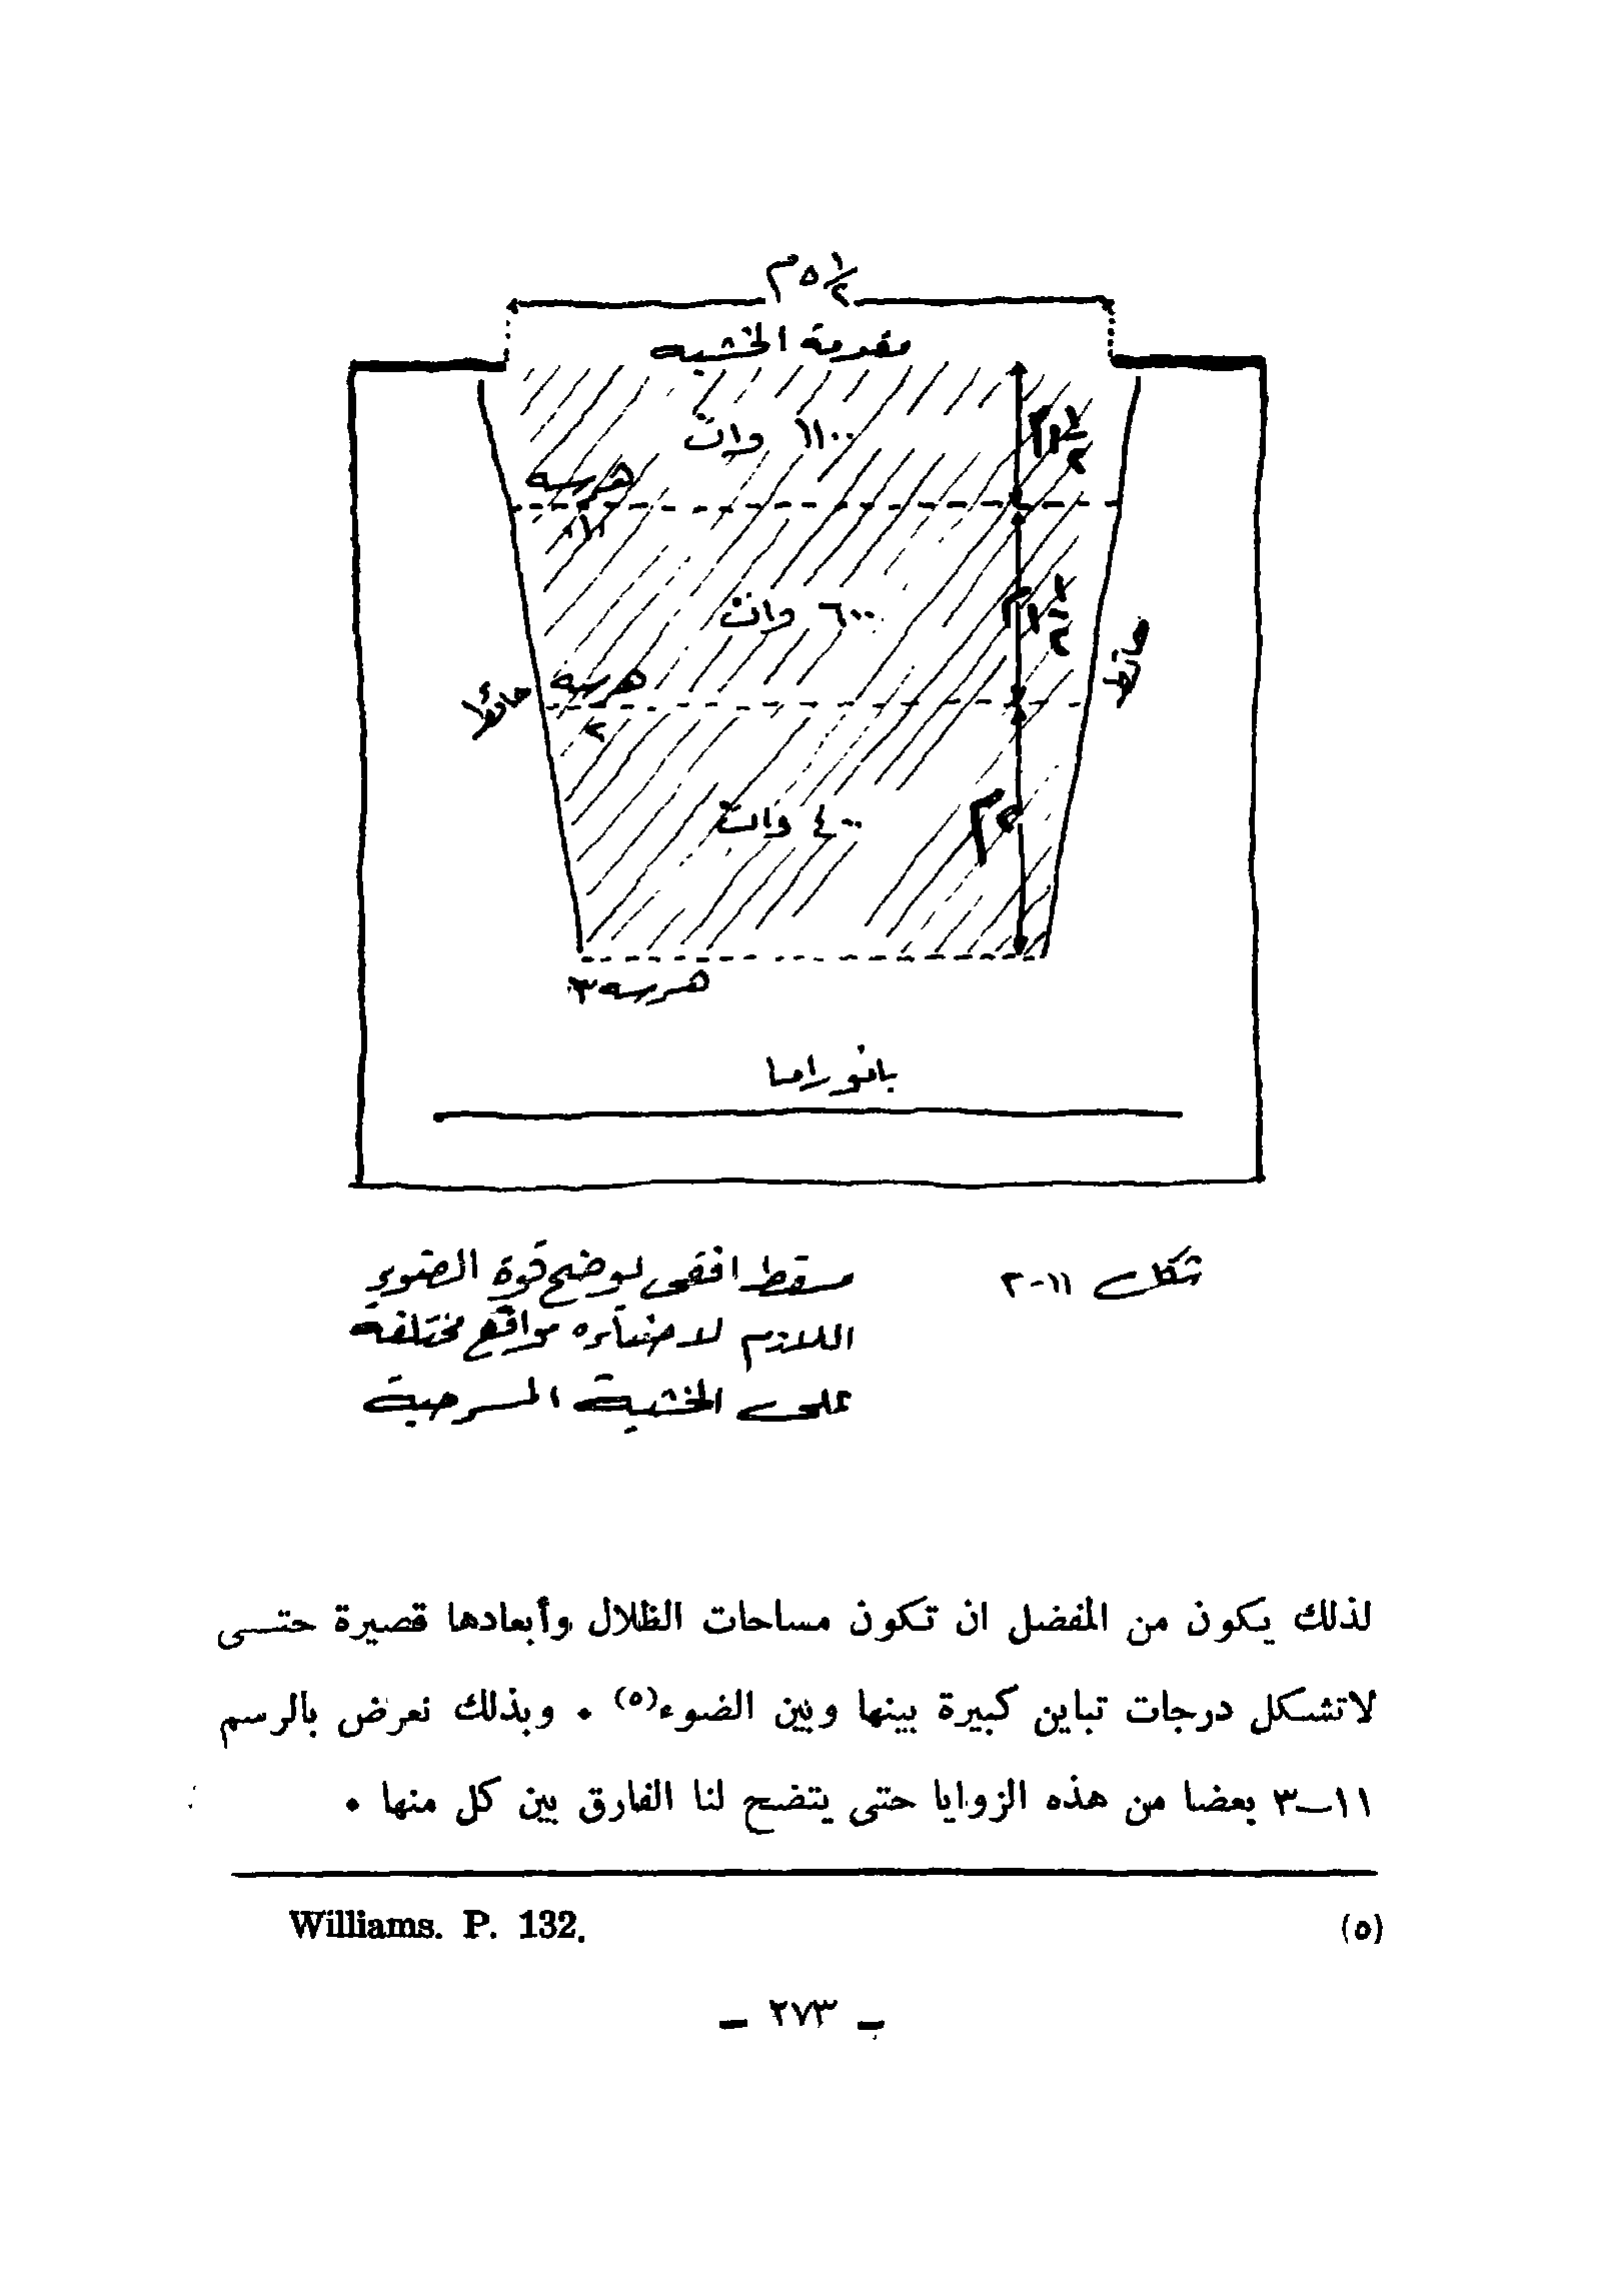 ٥ ١/٢ م
مقدمة الخشبه
١١٠٠ وات
١ ١/٢ م
هرسه
١
٦٠٠ وات
١ ١/٢ م
حائط
حائط
هرسه
٢
٤٠٠ وات
٢م
هرسه ٣
بانوراما
شكل ١١-٢
مسقط افقى لوضح قوة الضوء
اللازم لاضاءه مواقع مختلفة
على الخشبة المسرحية
لذلك يكون من المفضل ان تكون مساحات الظلال وأبعادها قصيرة حتى
لاتشكل درجات تباين كبيرة بينها وبين الضوء(٥) . وبذلك نعرض بالرسم
١١–٣ بعضا من هذه الزوايا حتى يتضح لنا الفارق بين كل منها .
(٥) Williams. P. 132.
– ٢٧٣ –